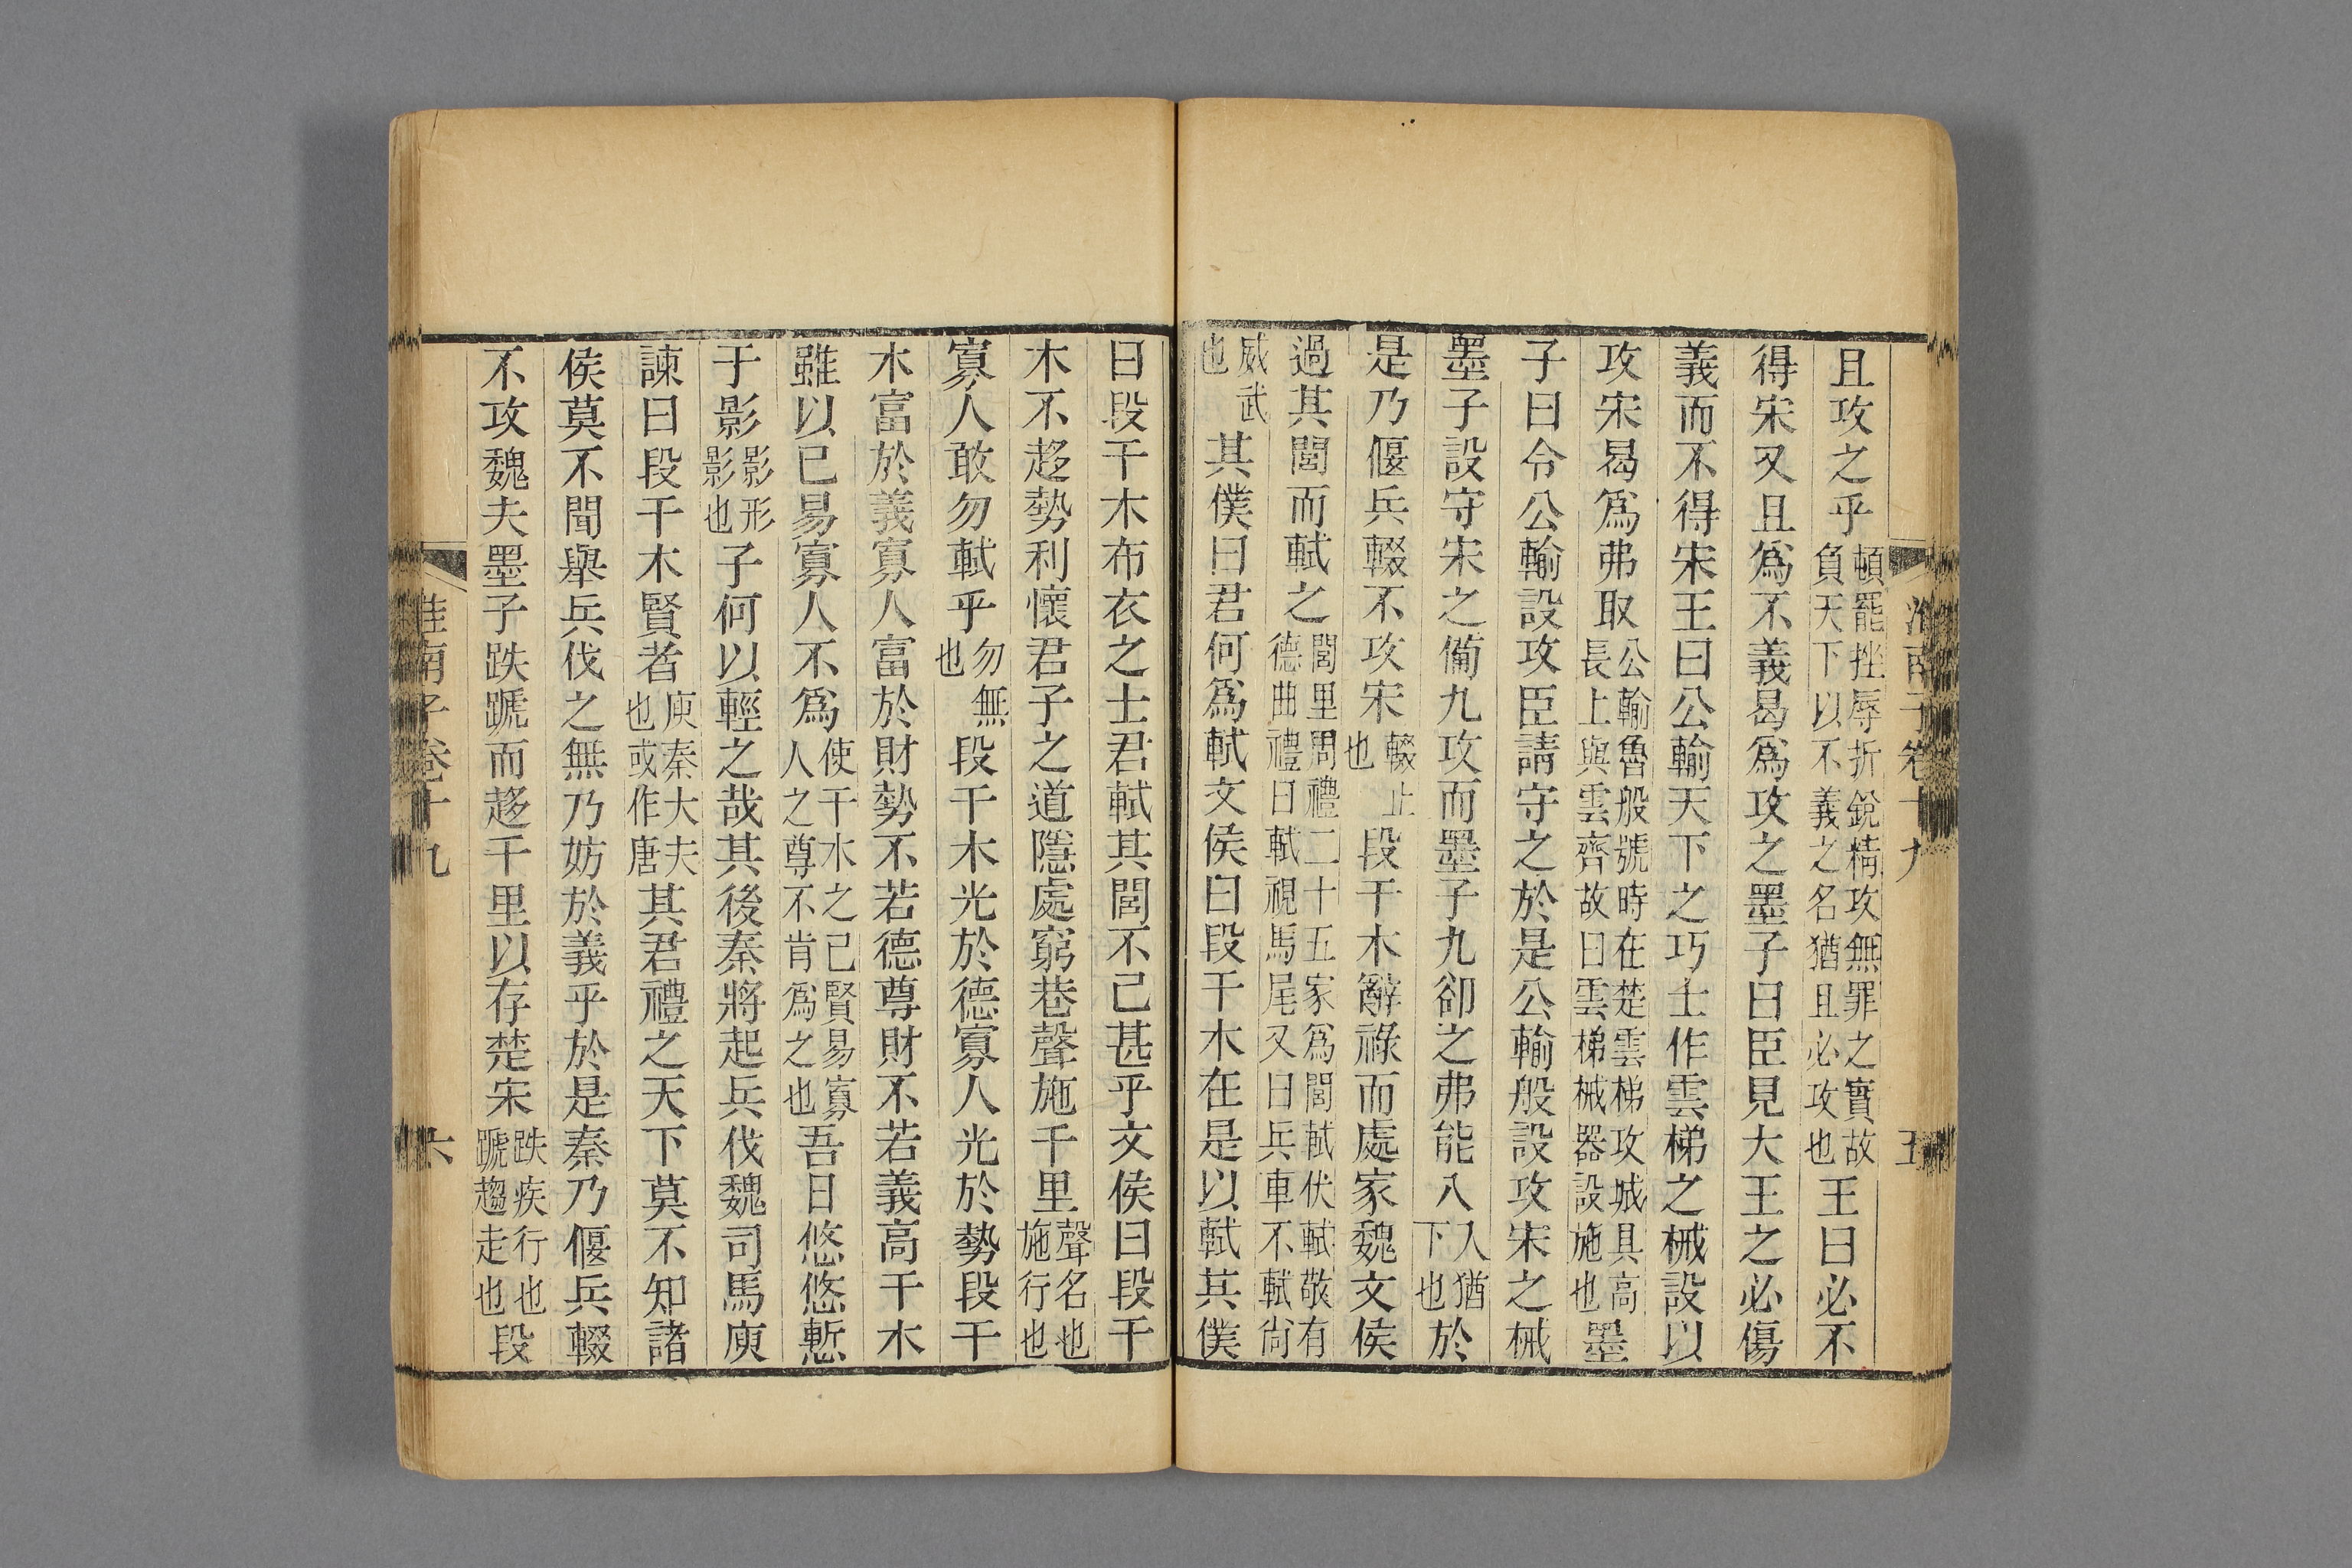 淮南子卷十九 五
且攻之乎頓罷挫辱折銳精攻無罪之實故負天下以不義之名猶且必攻也王曰必不
得宋又且爲不義曷爲攻之墨子曰臣見大王之必傷
義而不得宋王曰公輸天下之巧士作雲梯之械設以
攻宋曷爲弗取公輸魯般號時在楚雲梯攻城具高長上與雲齊故曰雲梯械器設施也墨
子曰令公輸設攻臣請守之於是公輸般設攻宋之械
墨子設守宋之備九攻而墨子九卻之弗能入入猶下也於
是乃偃兵輟不攻宋輟止也段干木辭祿而處家魏文侯
過其閭而軾之閭里周禮二十五家爲閭軾伏軾敬有德曲禮曰軾視馬尾又曰兵車不軾尙
威武也其僕曰君何爲軾文侯曰段干木在是以軾其僕
曰段干木布衣之士君軾其閭不已甚乎文侯曰段干
木不趍勢利懷君子之道隱處窮巷聲施千里聲名也施行也
寡人敢勿軾乎勿無也段干木光於德寡人光於勢段干
木富於義寡人富於財勢不若德尊財不若義高干木
雖以已易寡人不爲使干木之已賢易寡人之尊不肯爲之也吾日悠悠慙
于影影形影也子何以輕之哉其後秦將起兵伐魏司馬庾
諫曰段干木賢者庾秦大夫也或作唐其君禮之天下莫不知諸
侯莫不聞舉兵伐之無乃妨於義乎於是秦乃偃兵輟
不攻魏夫墨子跌蹏而趍千里以存楚宋跌疾行也蹏趨走也段
淮南子卷十九 六